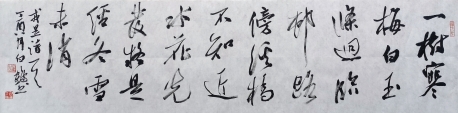 一树寒
梅白玉
条迥临
村路
傍溪桥
不知近
水花先
发疑是
经冬雪
未消